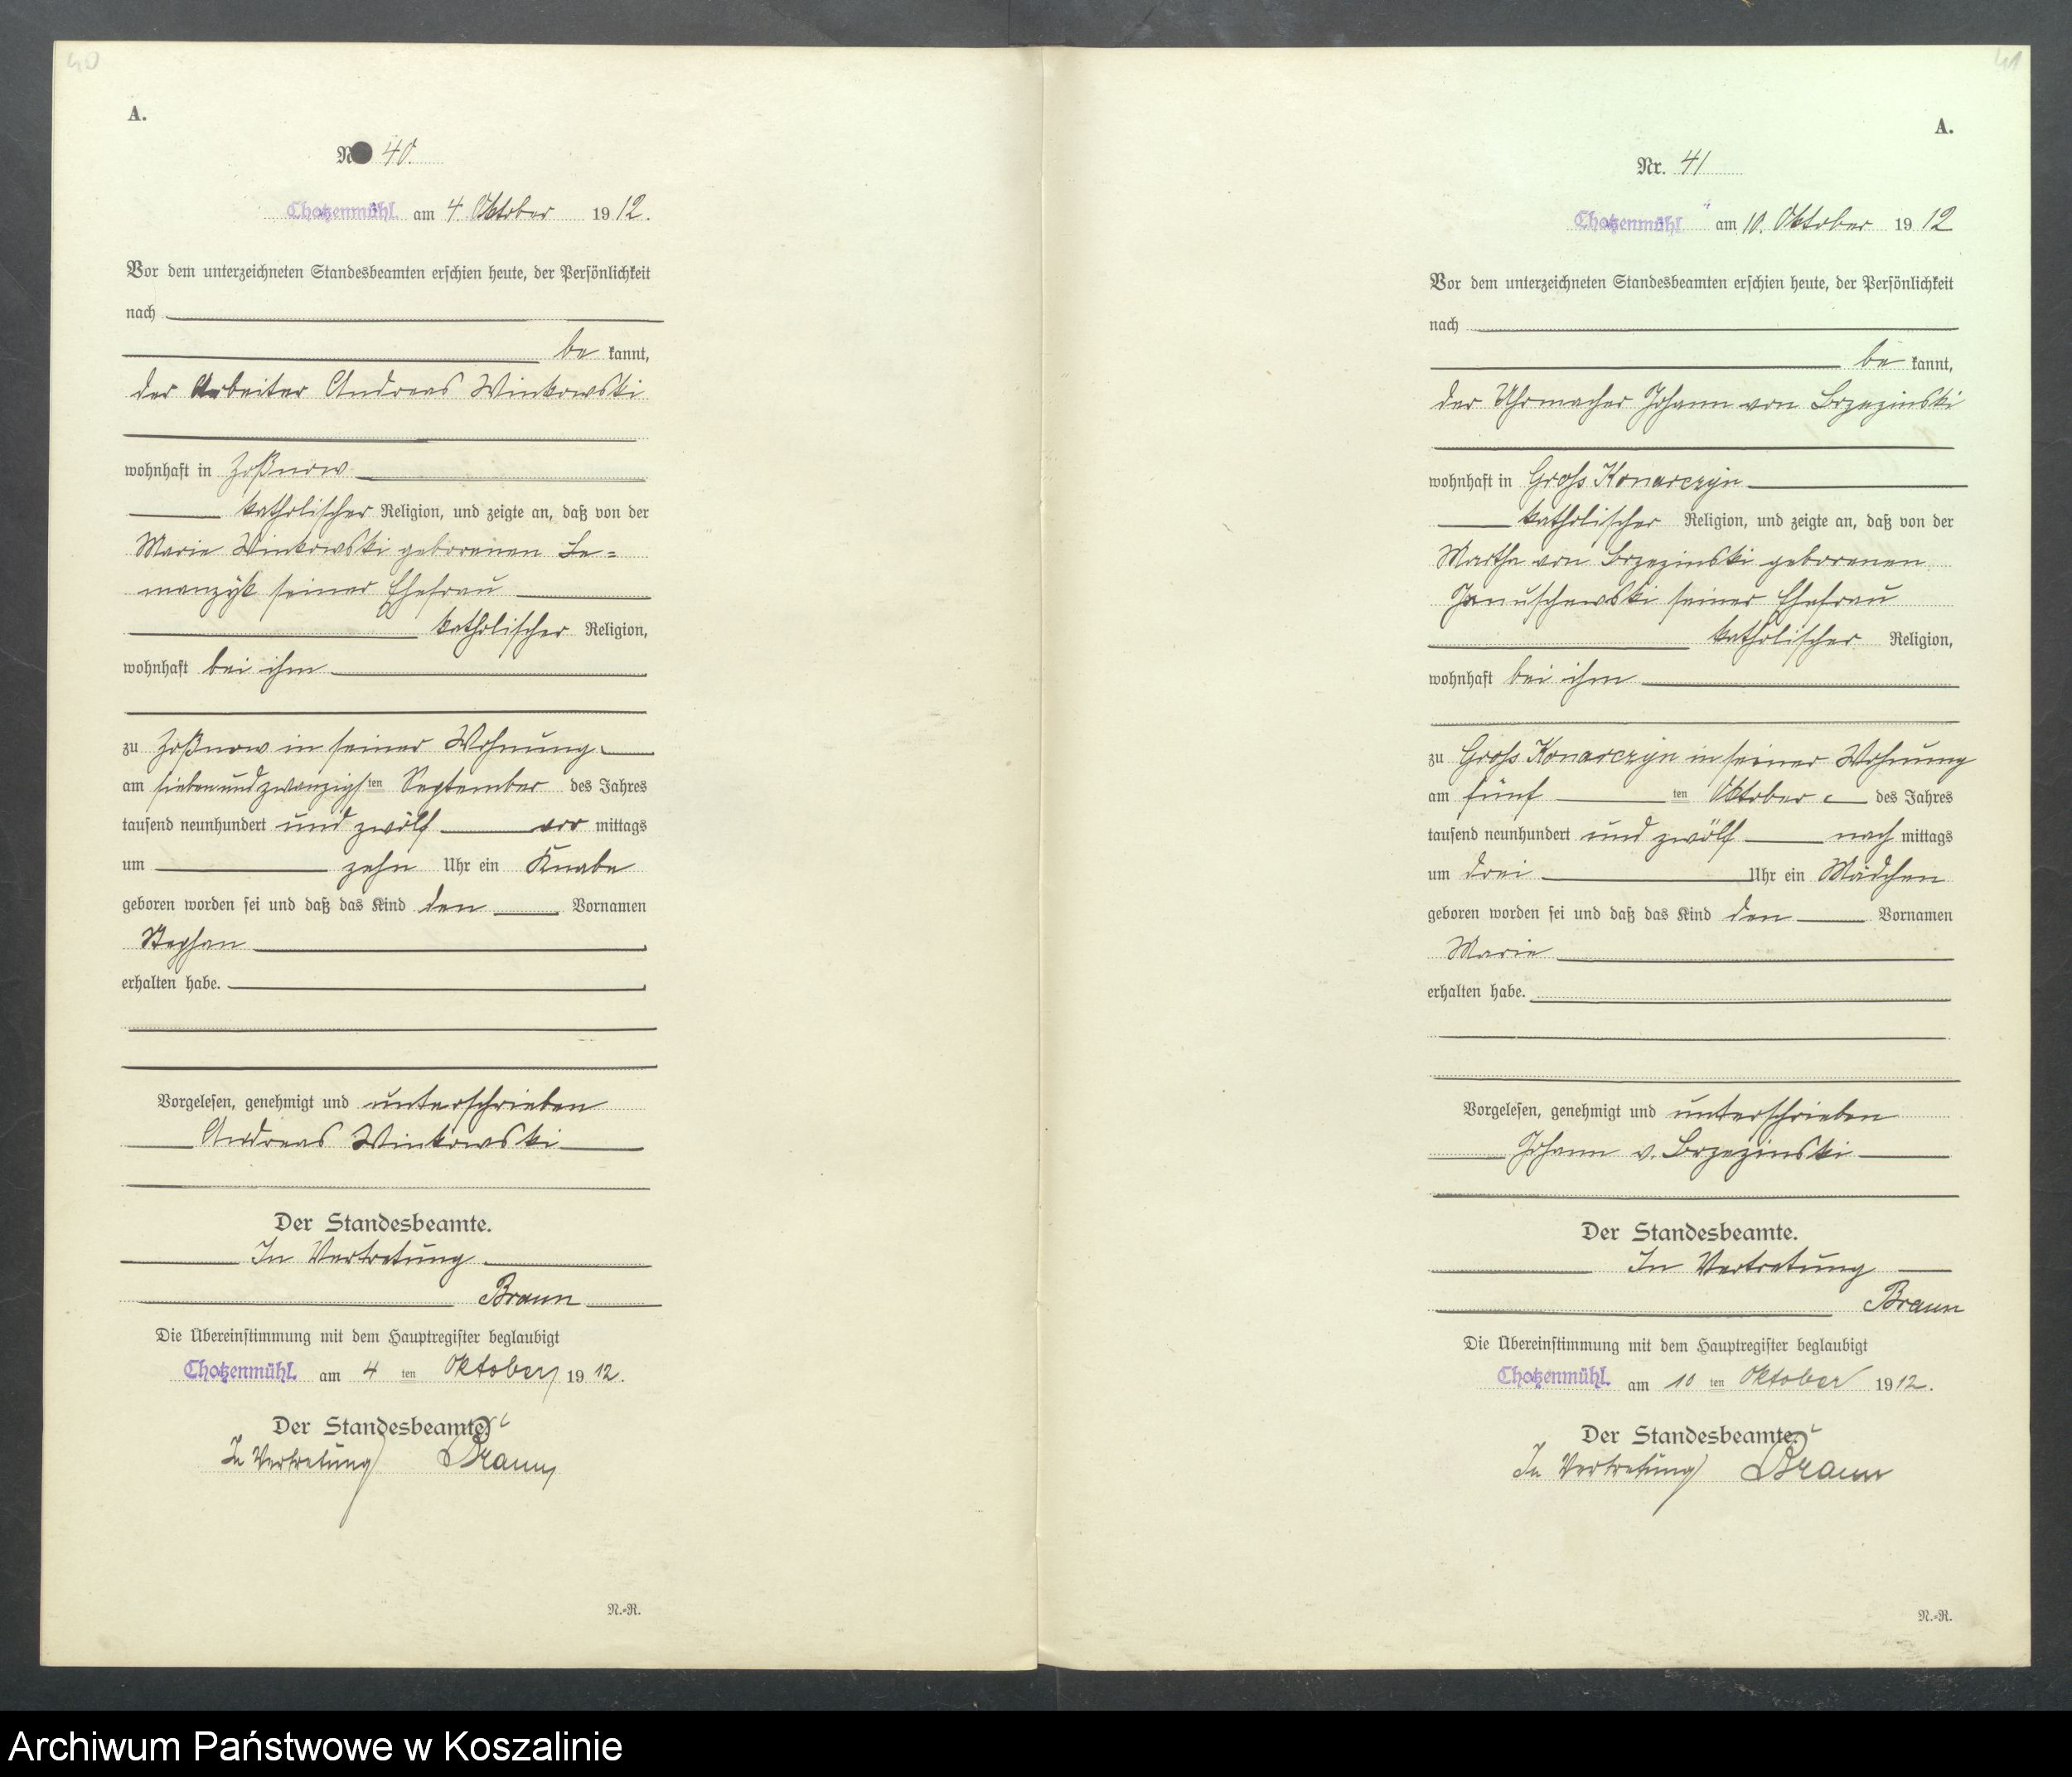 40
A.
Nr. 40.
Chotzenmühl am 4. Oktober 1912.
Vor dem unterzeichneten Standesbeamten erschien heute, der Persönlichkeit
nach
be kannt,
der Arbeiter Andreas Winkowski
wohnhaft in Zoßnow
katholischer Religion, und zeigte an, daß von der
Marie Winkowski geborenen Le=
manzyk seiner Ehefrau
katholischer Religion,
wohnhaft bei ihm
zu Zoßnow in seiner Wohnung
am siebenundzwanzigsten September des Jahres
tausend neunhundert und zwölf vor mittags
um zehn Uhr ein Knabe
geboren worden sei und daß das Kind den Vornamen
Stephan
erhalten habe.
Vorgelesen, genehmigt und unterschrieben
Andreas Winkowski
Der Standesbeamte.
In Vertretung
Braun
Die Übereinstimmung mit dem Hauptregister beglaubigt
Chotzenmühl. am 4 ten Oktober 1912.
Der Standesbeamte.
In Vertretung Braun
N.-R.
41
A.
Nr. 41
Chotzenmühl am 10. Oktober 1912
Vor dem unterzeichneten Standesbeamten erschien heute, der Persönlichkeit
nach
be kannt,
der Uhrmacher Johann von Brzezinski
wohnhaft in Gross Konarczyn
katholischer Religion, und zeigte an, daß von der
Martha von Brzezinski geborenen
Januschewski seiner Ehefrau
katholischer Religion,
wohnhaft bei ihm
zu Gross Konarczyn in seiner Wohnung
am fünf ten Oktober des Jahres
tausend neunhundert und zwölf nach mittags
um drei Uhr ein Mädchen
geboren worden sei und daß das Kind den Vornamen
Marie
erhalten habe.
Vorgelesen, genehmigt und unterschrieben
Johann v. Brzezinski
Der Standesbeamte.
In Vertretung
Braun
Die Übereinstimmung mit dem Hauptregister beglaubigt
Chotzenmühl. am 10 ten Oktober 1912.
Der Standesbeamte.
In Vertretung Braun
N.-R.
Archiwum Państwowe w Koszalinie